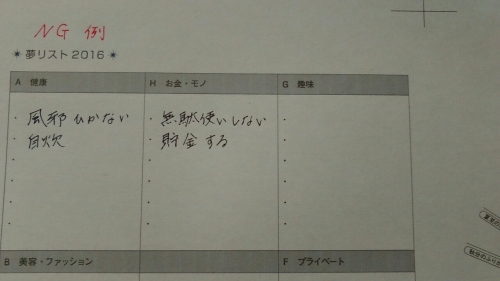 NG 例
＊ 夢リスト2016 ＊
A 健康
H お金・モノ
G 趣味
・風邪ひかない
・自炊
・
・
・
・
・無駄使いしない
・貯金する
・
・
・
・
・
・
・
・
・
・
B 美容・ファッション
F プライベート